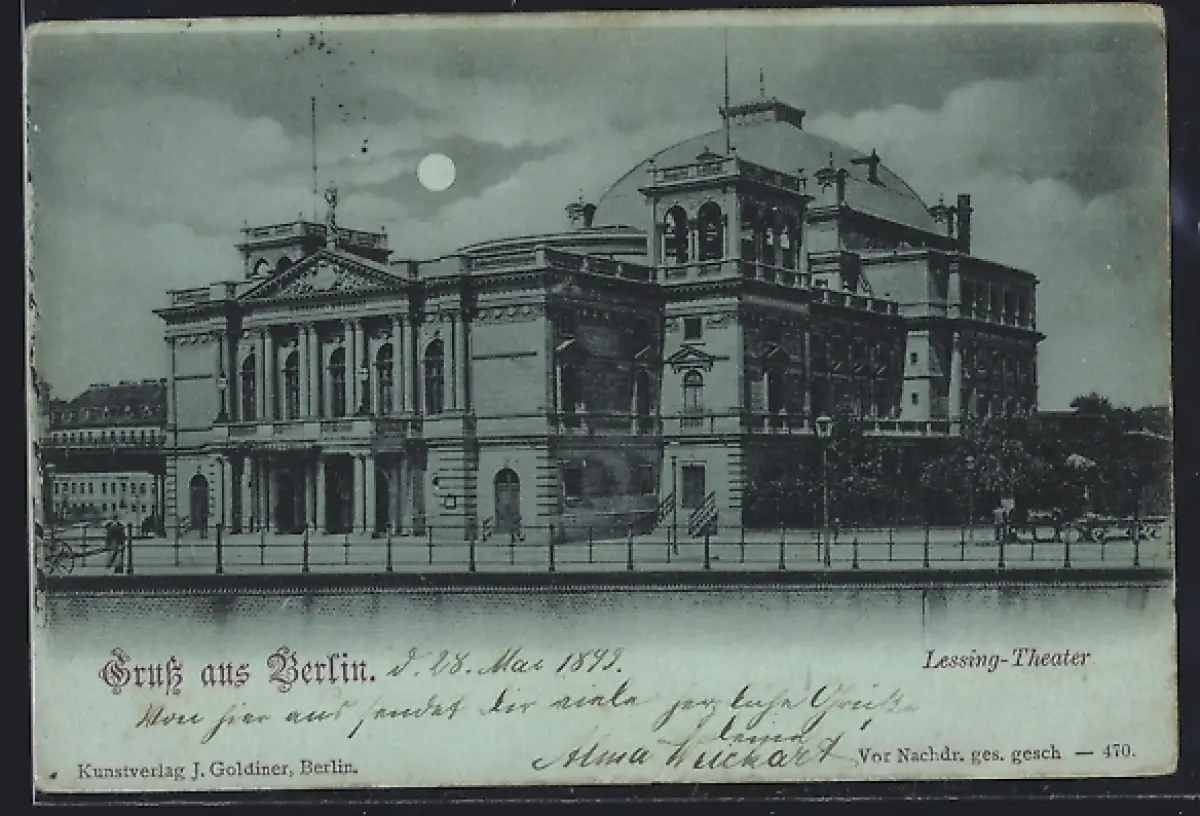 Gruß aus Berlin. d. 28. Mai 1898.
Lessing-Theater
Von hier aus sendet dir viele herzliche Grüße
deine
Alma
Kunstverlag J. Goldiner, Berlin.
Vor Nachdr. ges. gesch — 470.